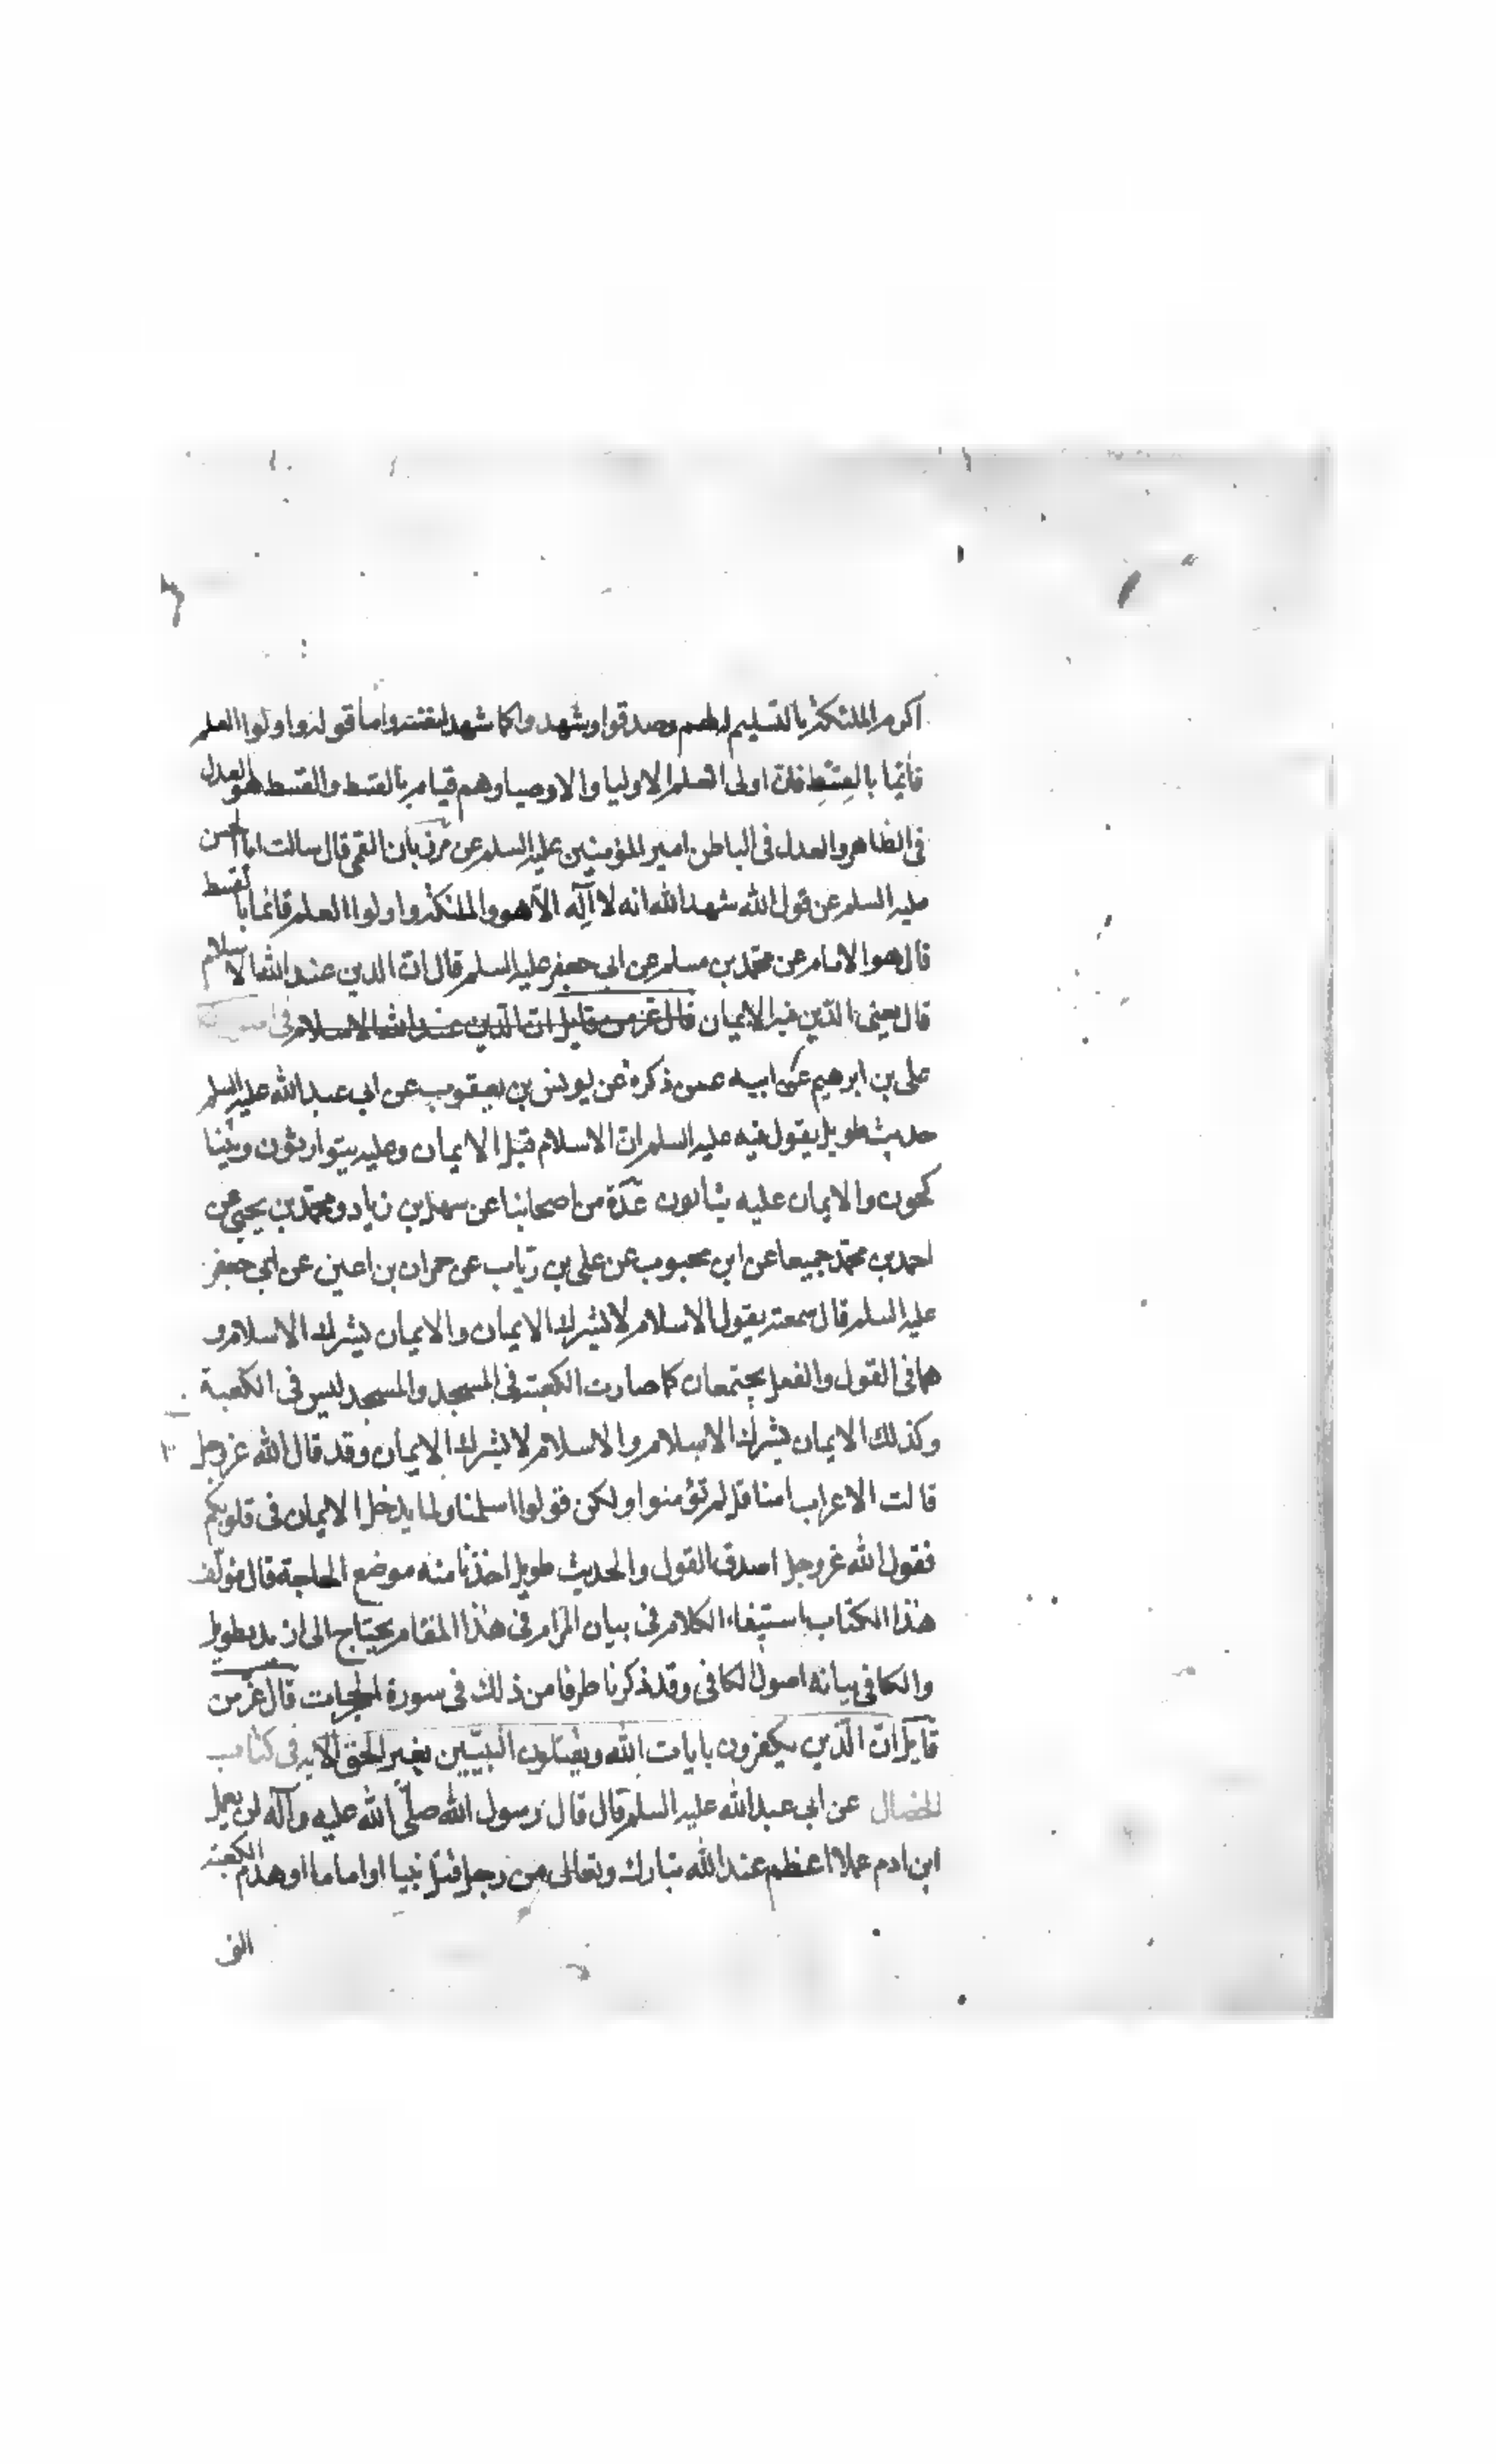 اكرم الملئكة بالتسليم لربهم وصدقوا وشهدوا كما شهد لنفسه واما قوله واولوا العلم
قائما بالقسط فان اولى العلم الاوليا والاوصيا وهم قيام بالقسط والقسط هو العدل
فى الظاهر والعدل فى الباطن امير المؤمنين عليه السلم عن مرزبان القمى قال سالت ابا الحسن
عليه السلم عن قول الله شهد الله انه لا اله الا هو والملئكة واولوا العلم قائما بالقسط
قال هو الامام عن محمد بن مسلم عن ابى جعفر عليه السلم قال ان الدين عند الله الاسلام
قال يعنى الدين فيه الايمان قال عز من قايل ان الدين عند الله الاسلام فى
على بن ابرهيم عن ابيه عمن ذكره عن يونس بن يعقوب عن ابى عبد الله عليه السلم
حديث طويل يقول فيه عليه السلم ان الاسلام قبل الايمان وعليه يتوارثون ويتنا
كحون والايمان عليه يثابون عدة من اصحابنا عن سهل بن زياد ومحمد بن يحيى عن
احمد بن محمد جميعا عن ابن محبوب عن على بن رياب عن حمران بن اعين عن ابى جعفر
عليه السلم قال سمعته يقول الاسلام لا يشرك الايمان والايمان يشرك الاسلام و
هما فى القول والفعل يجتمعان كما صارت الكعبة فى المسجد والمسجد ليس فى الكعبة
وكذلك الايمان يشرك الاسلام والاسلام لا يشرك الايمان وقد قال الله عز وجل
قالت الاعراب امنا قل لم تؤمنوا ولكن قولوا اسلمنا ولما يدخل الايمان فى قلوبكم
فقول الله عز وجل اصدق القول والحديث طويل اخذنا منه موضع الحاجة قال مؤلف
هذا الكتاب استيفاء الكلام فى بيان المرام فى هذا المقام يحتاج الى از يد تطويل
والكافى بيانه اصول الكافى وقد ذكرنا طرفا من ذلك فى سورة الحجرات قال عز من
قايل ان الذين يكفرون بايات الله ويقتلون النبيين بغير الحق الايه فى كتاب
الخصال عن ابى عبد الله عليه السلم قال قال رسول الله صلى الله عليه وآله لن يعمل
ابن ادم عملا اعظم عند الله تبارك وتعالى من رجل قتل نبيا او اماما او هدم الكعبة
التى